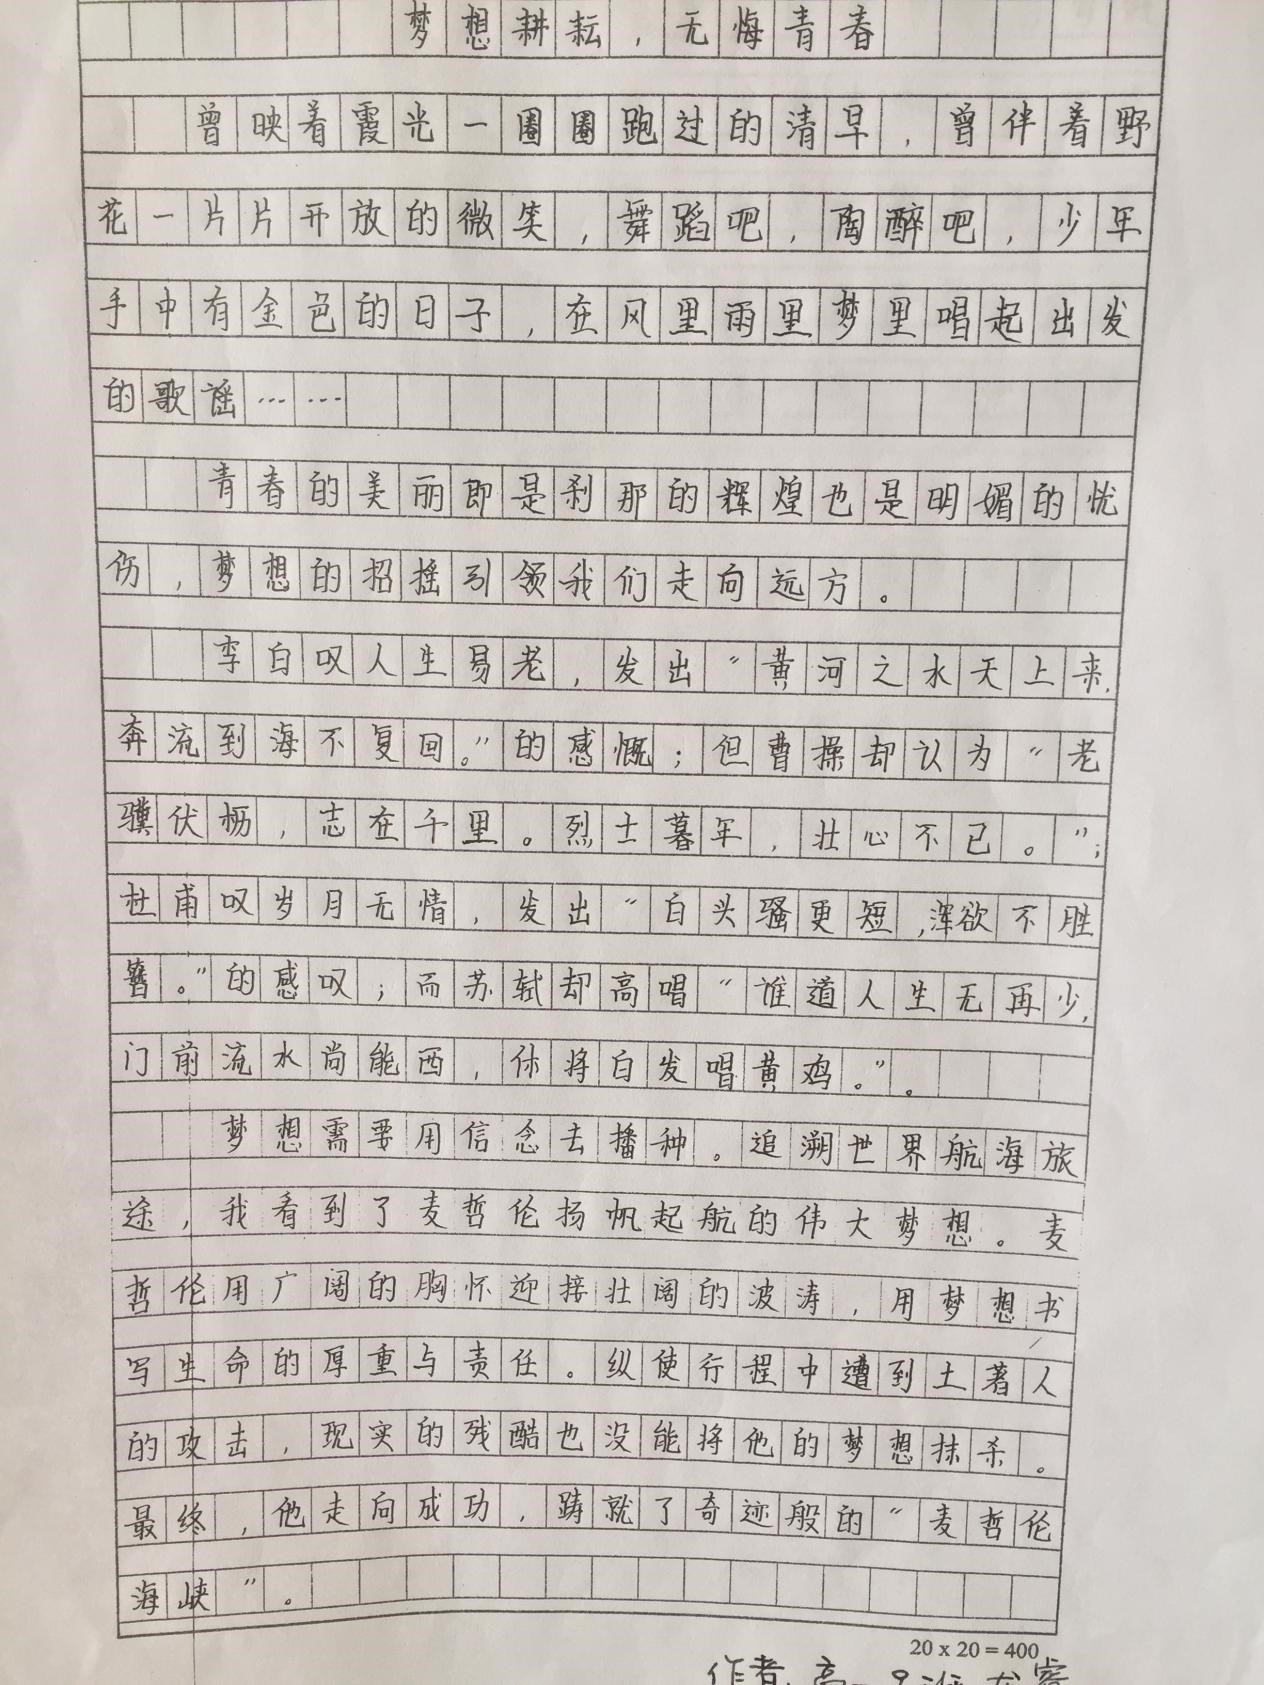 梦想耕耘，无悔青春
曾映着霞光一圈圈跑过的清早，曾伴着野
花一片片开放的微笑，舞蹈吧，陶醉吧，少年
手中有金色的日子，在风里雨里梦里唱起出发
的歌谣……
青春的美丽即是刹那的辉煌也是明媚的忧
伤，梦想的招摇引领我们走向远方。
李白叹人生易老，发出“黄河之水天上来，
奔流到海不复回。”的感慨；但曹操却认为“老
骥伏枥，志在千里。烈士暮年，壮心不已。”；
杜甫叹岁月无情，发出“白头骚更短，浑欲不胜
簪。”的感叹；而苏轼却高唱“谁道人生无再少，
门前流水尚能西，休将白发唱黄鸡。”。
梦想需要用信念去播种。追溯世界航海旅
途，我看到了麦哲伦扬帆起航的伟大梦想。麦
哲伦用广阔的胸怀迎接壮阔的波涛，用梦想书
写生命的厚重与责任。纵使行程中遭到土著人
的攻击，现实的残酷也没能将他的梦想抹杀。
最终，他走向成功，踌就了奇迹般的“麦哲伦
海峡”。
20 x 20 = 400
作者 高一